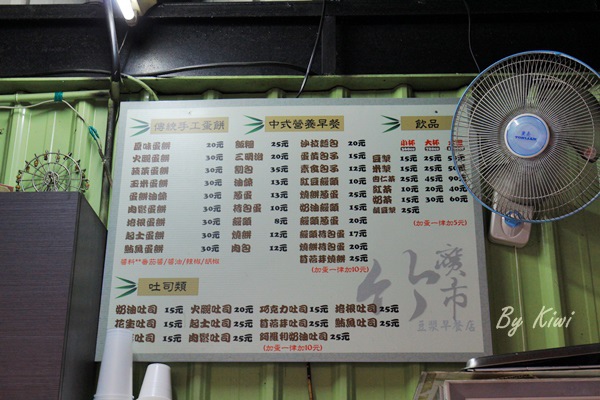 傳統手工蛋餅
原味蛋餅 20元
火腿蛋餅 30元
蔬菜蛋餅 30元
玉米蛋餅 30元
蛋餅油條 30元
肉鬆蛋餅 30元
培根蛋餅 30元
起士蛋餅 30元
鮪魚蛋餅 30元
醬料**番茄醬/醬油/辣椒/胡椒
中式營養早餐
飯糰 25元
三明治 20元
割包 35元
油條 13元
蔥蛋 13元
荷包蛋 10元
饅頭 8元
燒餅 12元
肉包 12元
沙拉麵包 20元
蛋黃包子 15元
素食包子 13元
紅豆饅頭 10元
燒餅蔥蛋 25元
奶油饅頭 15元
饅頭蔥蛋 20元
饅頭荷包蛋 17元
燒餅荷包蛋 20元
草莓夾燒餅 25元
(加蛋一律加10元)
飲品
小杯 大杯
豆漿 15元 25元 50元
米漿 15元 25元 50元
杏仁茶 25元 45元 90元
紅茶 10元 20元 40元
奶茶 15元 30元 60元
鹹豆漿 25元
(加蛋一律加5元)
吐司類
奶油吐司 15元 火腿吐司 20元 巧克力吐司 15元 培根吐司 25元
花生吐司 15元 起士吐司 25元 草莓夾吐司 25元 鮪魚吐司 25元
吐司 15元 肉鬆吐司 25元 阿薩利奶油吐司 25元
(加蛋一律加10元)
寶市
豆漿早餐店
By Kiwi